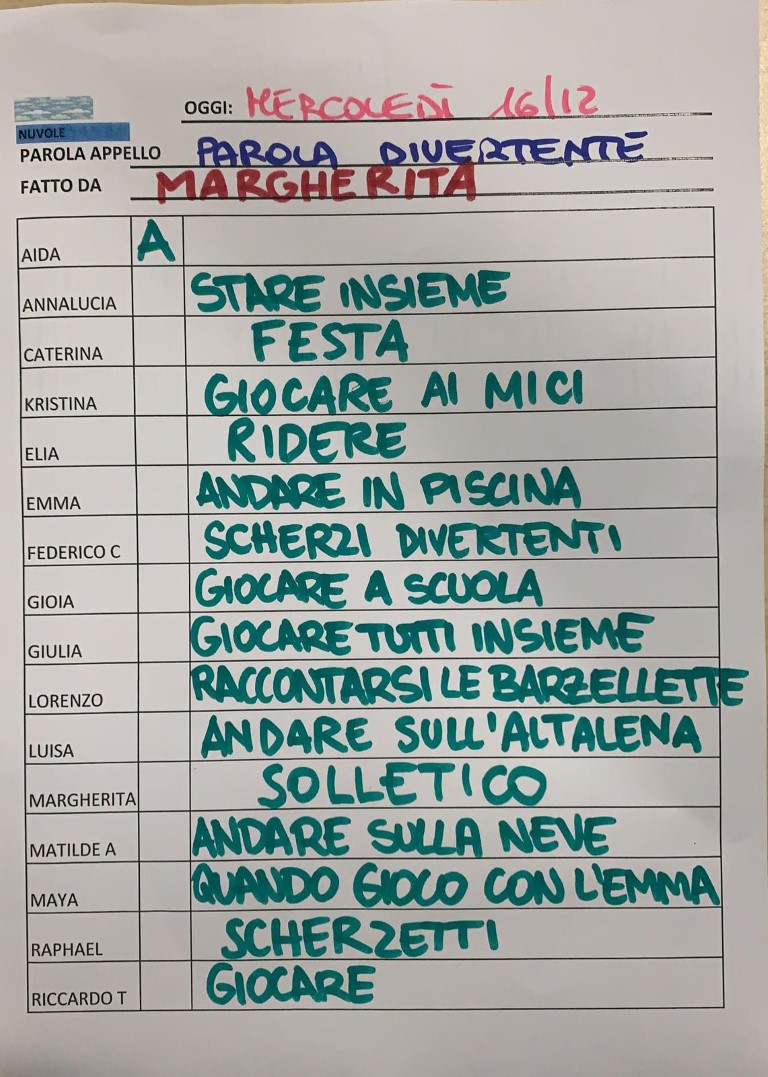 OGGI: MERCOLEDÌ 16/12
NUVOLE
PAROLA APPELLO PAROLA DIVERTENTE
FATTO DA MARGHERITA
AIDA A
ANNALUCIA STARE INSIEME
CATERINA FESTA
KRISTINA GIOCARE AI MICI
ELIA RIDERE
EMMA ANDARE IN PISCINA
FEDERICO C SCHERZI DIVERTENTI
GIOIA GIOCARE A SCUOLA
GIULIA GIOCARE TUTTI INSIEME
LORENZO RACCONTARSI LE BARZELLETTE
LUISA ANDARE SULL'ALTALENA
MARGHERITA SOLLETICO
MATILDE A ANDARE SULLA NEVE
MAYA QUANDO GIOCO CON L'EMMA
RAPHAEL SCHERZETTI
RICCARDO T GIOCARE